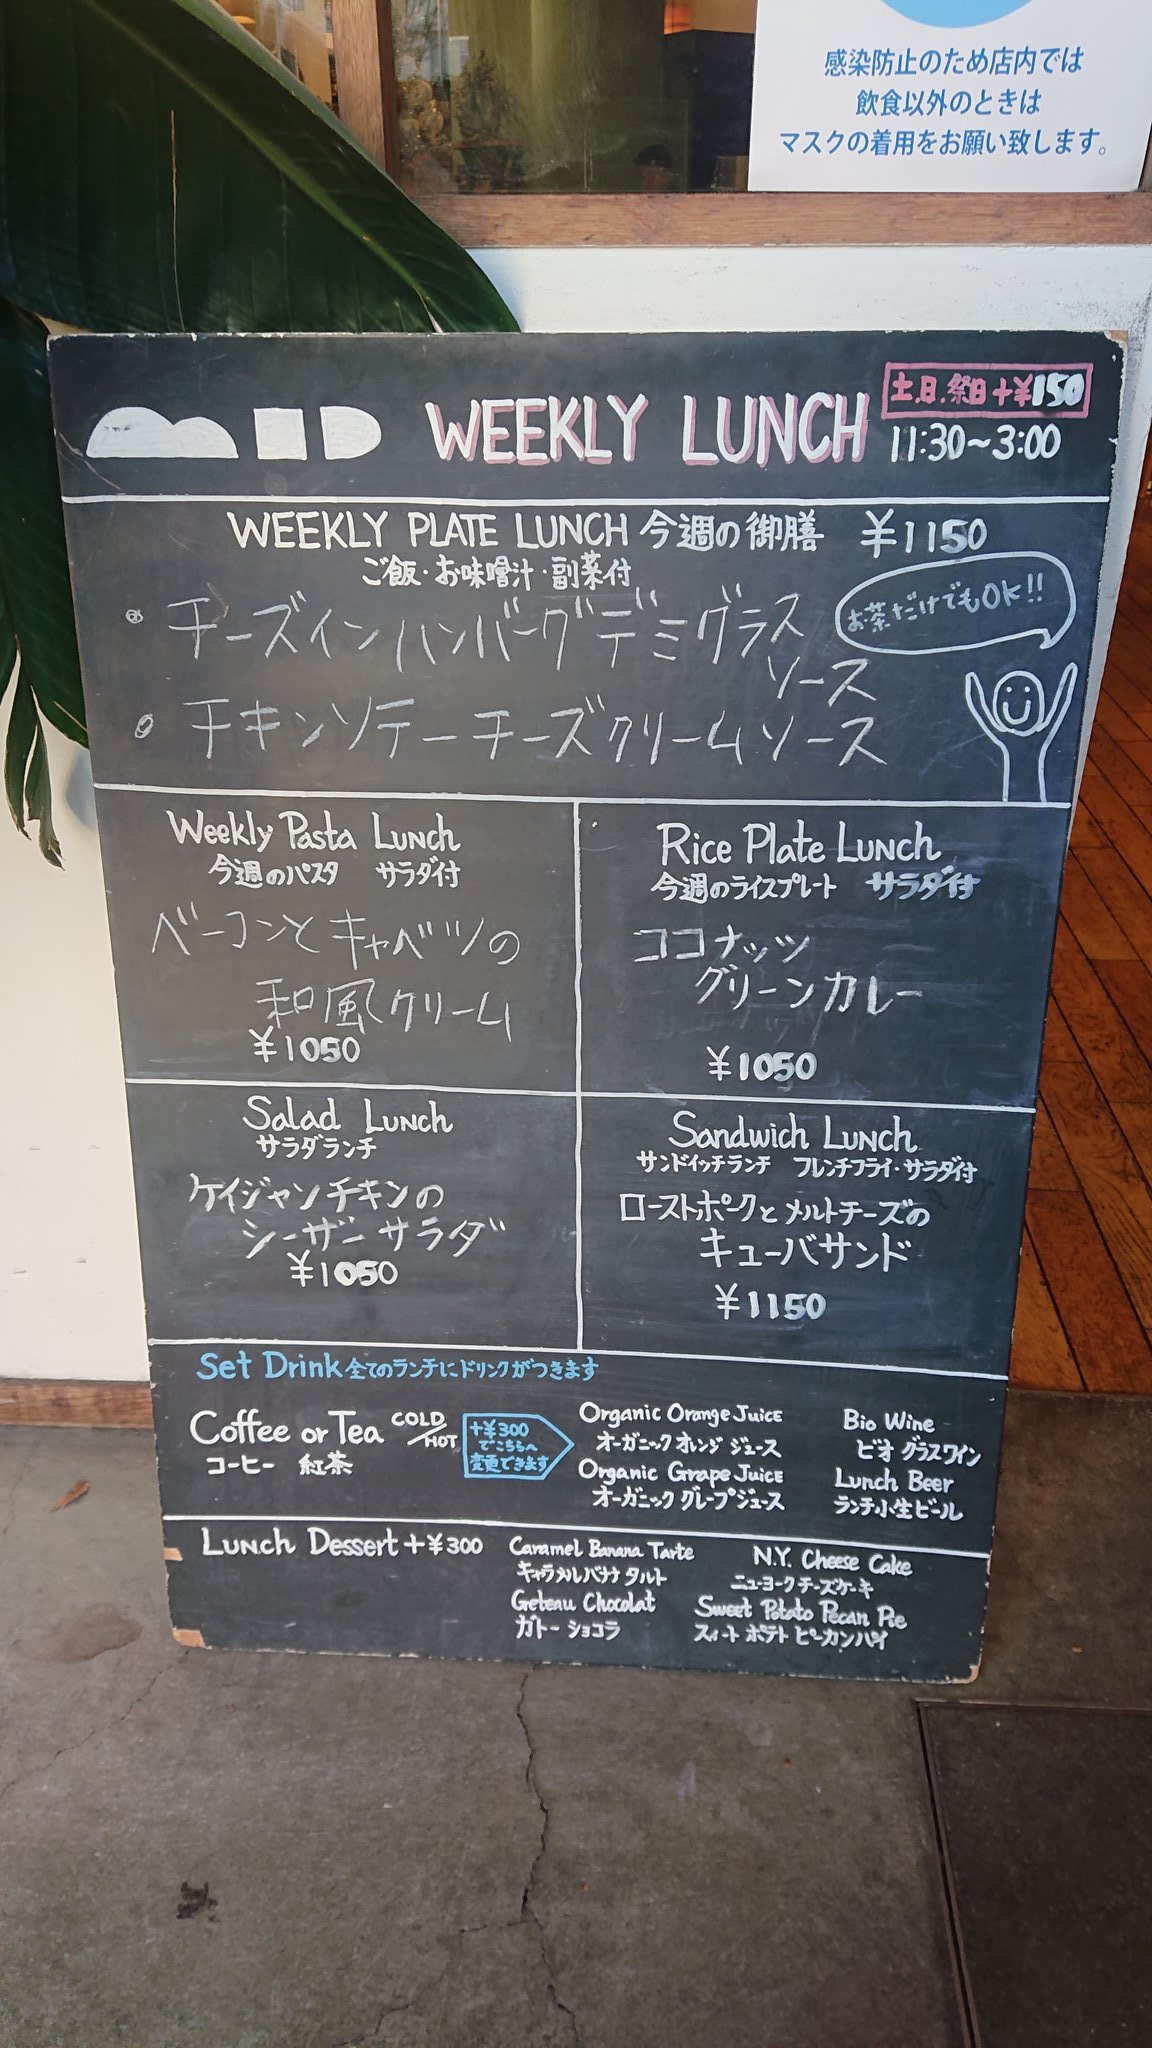 感染防止のため店内では
飲食以外のときは
マスクの着用をお願い致します。
土.日.祭日+¥150
WEEKLY LUNCH
11:30~3:00
WEEKLY PLATE LUNCH 今週の御膳 ¥1150
ご飯・お味噌汁・副菜付
お茶だけでもOK!!
・チーズインハンバーグデミグラス
ソース
・チキンソテーチーズクリームソース
Weekly Pasta Lunch
今週のパスタ サラダ付
ベーコンとキャベツの
和風クリーム
¥1050
Rice Plate Lunch
今週のライスプレート サラダ付
ココナッツ
グリーンカレー
¥1050
Salad Lunch
サラダランチ
ケイジャンチキンの
シーザーサラダ
¥1050
Sandwich Lunch
サンドイッチランチ フレンチフライ・サラダ付
ローストポークとメルトチーズの
キューバサンド
¥1150
Set Drink 全てのランチにドリンクがつきます
Coffee or Tea COLD/HOT
コーヒー 紅茶
+¥300
でこちらへ
変更できます
Organic Orange Juice
オーガニックオレンジジュース
Organic Grape Juice
オーガニックグレープジュース
Bio Wine
ビオ グラスワイン
Lunch Beer
ランチ小生ビール
Lunch Dessert +¥300
Caramel Banana Tarte
キャラメルバナナタルト
Geteau Chocolat
ガトーショコラ
N.Y. Cheese Cake
ニューヨークチーズケーキ
Sweet Potato Pecan Pie
スイートポテトピーカンパイ